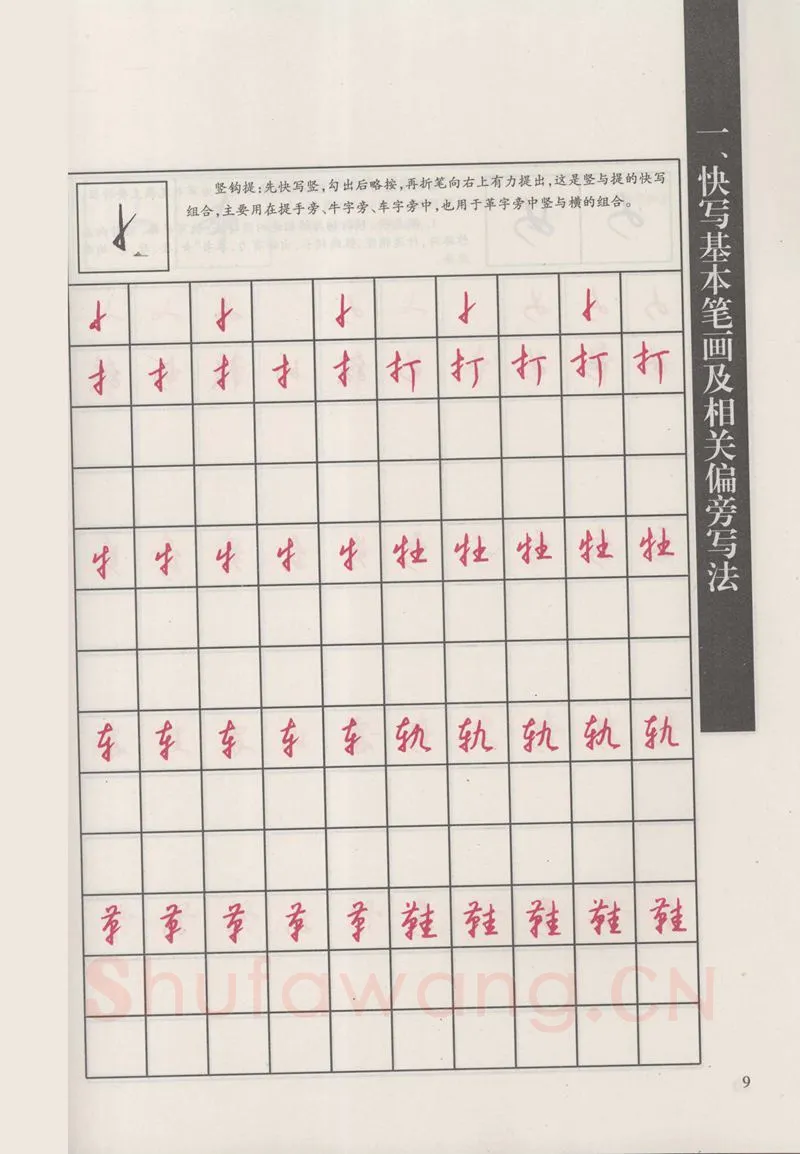 一、快写基本笔画及相关偏旁写法
竖钩提：先快写竖，勾出后略按，再折笔向右上有力提出，这是竖与提的快写
组合，主要用在提手旁、牛字旁、车字旁中，也用于革字旁中竖与横的组合。
扌 扌 扌 扌 扌 打 打 打 打 打
牜 牜 牜 牜 牜 牡 牡 牡 牡 牡
车 车 车 车 车 轨 轨 轨 轨 轨
革 革 革 革 革 鞋 鞋 鞋 鞋 鞋
Shufawang.CN
9